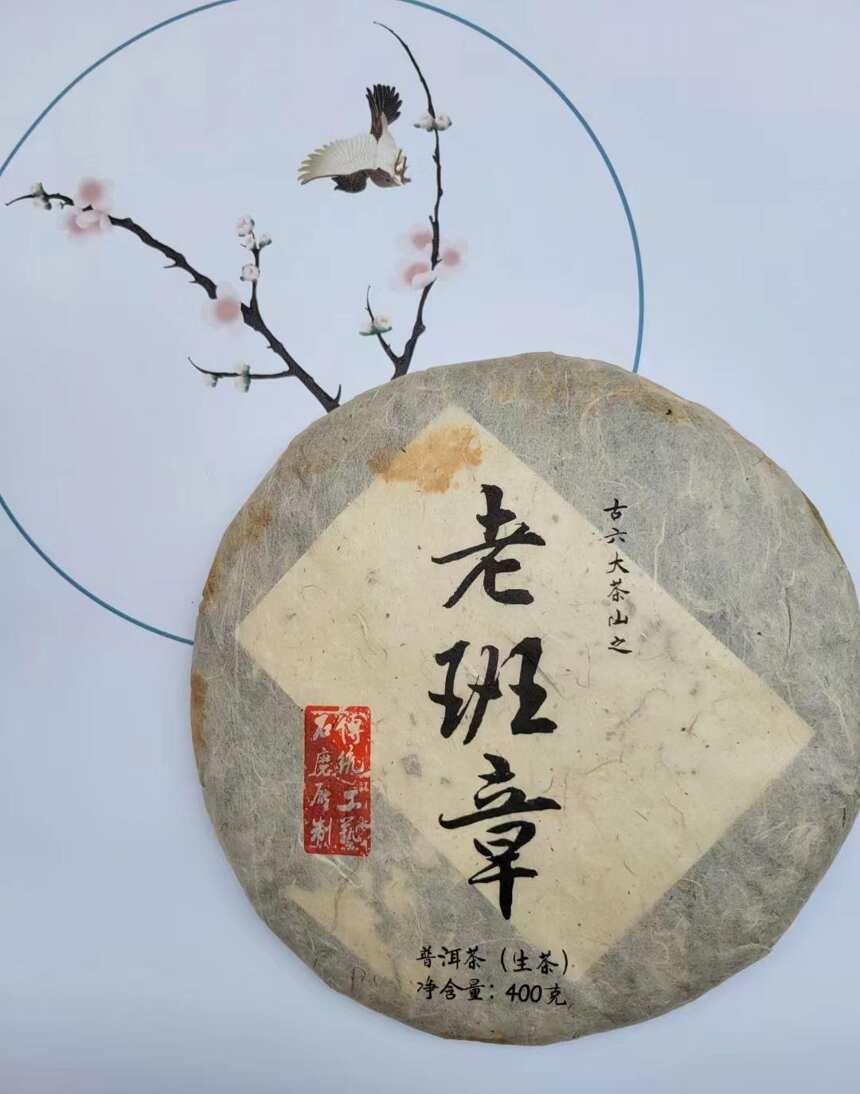 古六大茶山之
老班章
传统工艺
石磨压制
普洱茶(生茶)
净含量:400克